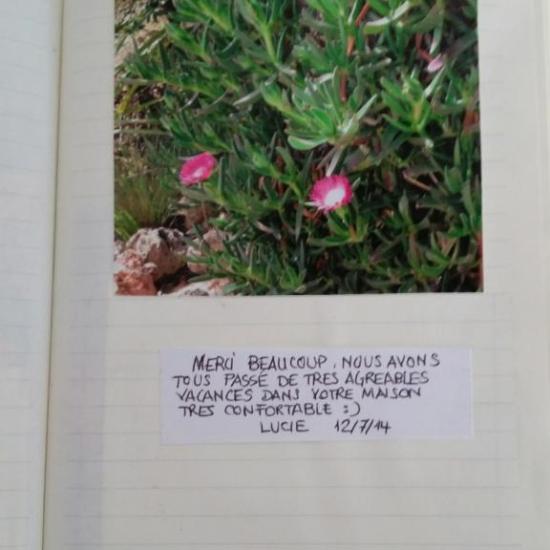 MERCI BEAUCOUP, NOUS AVONS
TOUS PASSÉ DE TRES AGREABLES
VACANCES DANS VOTRE MAISON
TRES CONFORTABLE :)
LUCIE 12/7/14